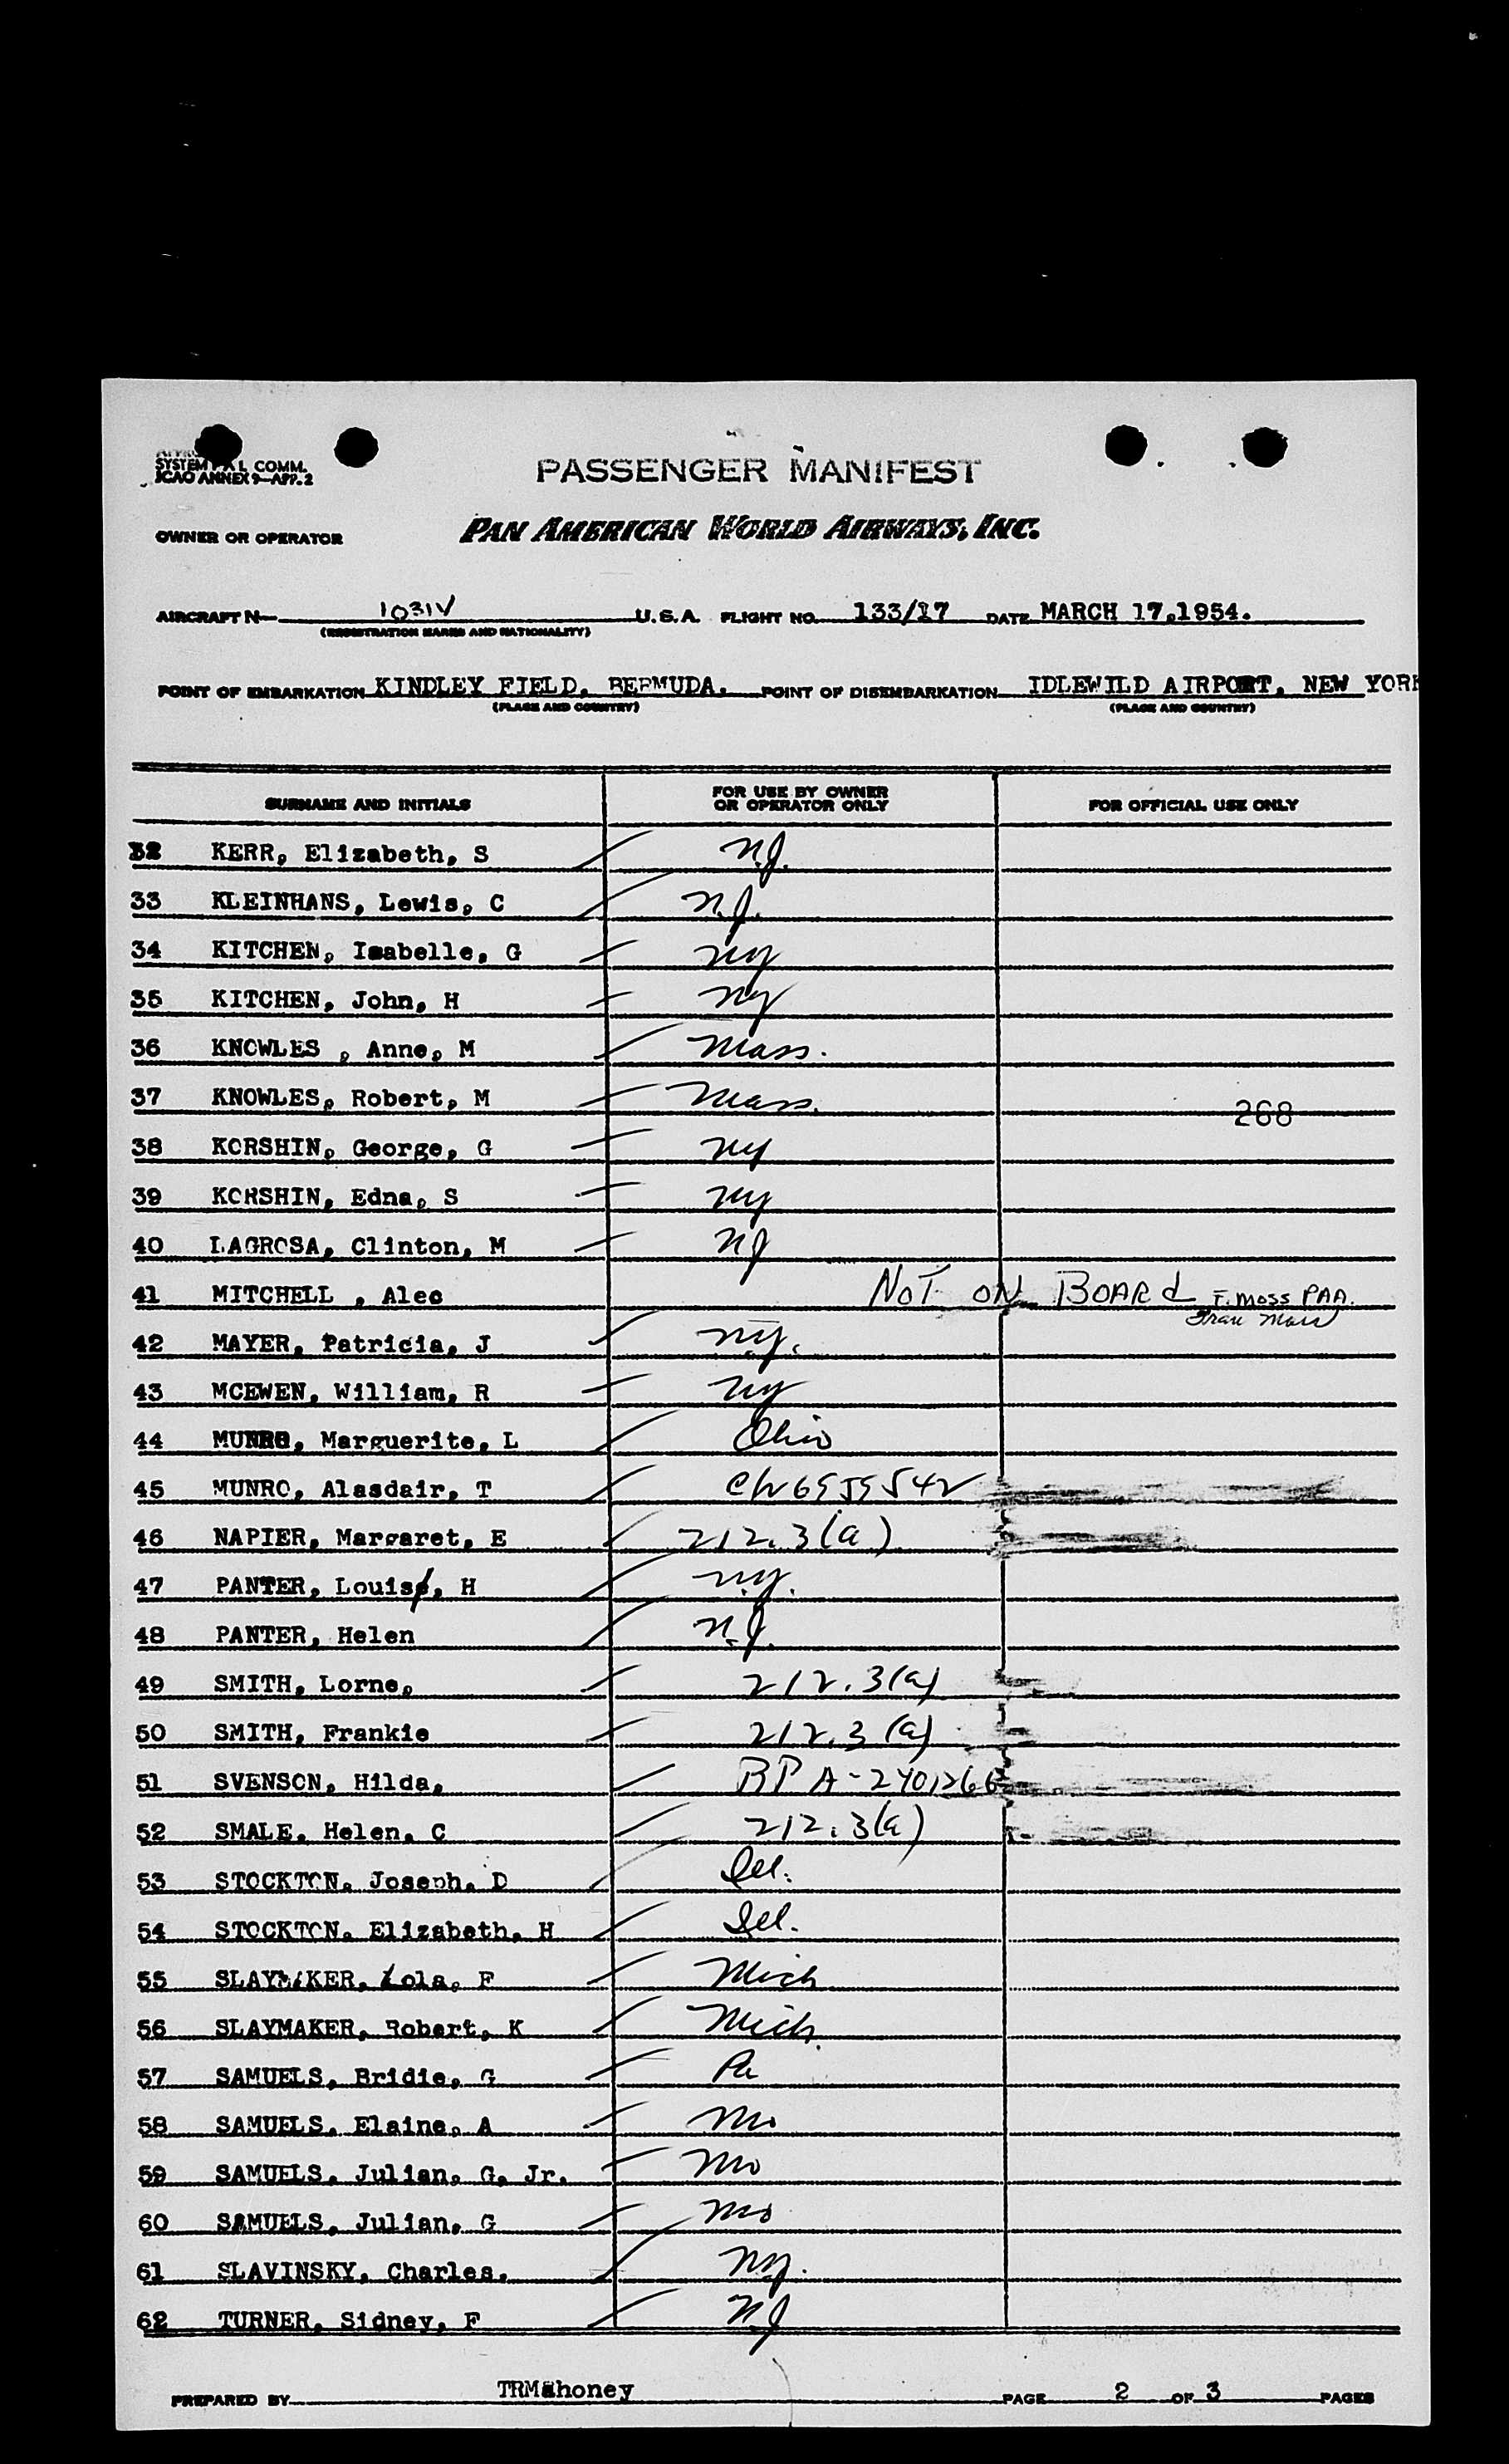 SYSTEM P.A.L COMM.
ICAO ANNEX 9—APP. 2
PASSENGER MANIFEST
OWNER OR OPERATOR PAN AMERICAN WORLD AIRWAYS, INC.
AIRCRAFT N— 1031V U.S.A. FLIGHT NO. 133/17 DATE MARCH 17,1954.
(REGISTRATION MARKS AND NATIONALITY)
POINT OF EMBARKATION KINDLEY FIELD, BERMUDA. POINT OF DISEMBARKATION IDLEWILD AIRPORT, NEW YORK
(PLACE AND COUNTRY) (PLACE AND COUNTRY)
SURNAME AND INITIALS FOR USE BY OWNER OR OPERATOR ONLY FOR OFFICIAL USE ONLY
32 KERR, Elizabeth, S N.J.
33 KLEINHANS, Lewis, C N.J.
34 KITCHEN, Isabelle, G NY
35 KITCHEN, John, H NY
36 KNOWLES , Anne, M Mass.
37 KNOWLES, Robert, M Mass.
268
38 KORSHIN, George, G NY
39 KORSHIN, Edna, S NY
40 LAGROSA, Clinton, M NJ
41 MITCHELL , Alec NOT ON BOARd F. MOSS PAA.
Fran Moss
42 MAYER, Patricia, J NY.
43 MCEWEN, William, R NY
44 MUNRO, Marguerite, L Ohio
45 MUNRO, Alasdair, T
46 NAPIER, Margaret, E 212.3(a)
47 PANTER, Louis, H N.Y.
48 PANTER, Helen N.J.
49 SMITH, Lorne, 212.3(a)
50 SMITH, Frankie 212.3(a)
51 SVENSON, Hilda, RP A-2401266
52 SMALE, Helen, C 212.3(a)
53 STOCKTON, Joseph, D Del.
54 STOCKTON, Elizabeth, H Del.
55 SLAYMAKER, Lola, F Mich
56 SLAYMAKER, Robert, K Mich.
57 SAMUELS, Bridie, G Pa
58 SAMUELS, Elaine, A Mo
59 SAMUELS, Julian, G, Jr. Mo
60 SAMUELS, Julian, G Mo
61 SLAVINSKY, Charles, NY.
62 TURNER, Sidney, F NJ
PREPARED BY TRMahoney PAGE 2 OF 3 PAGES